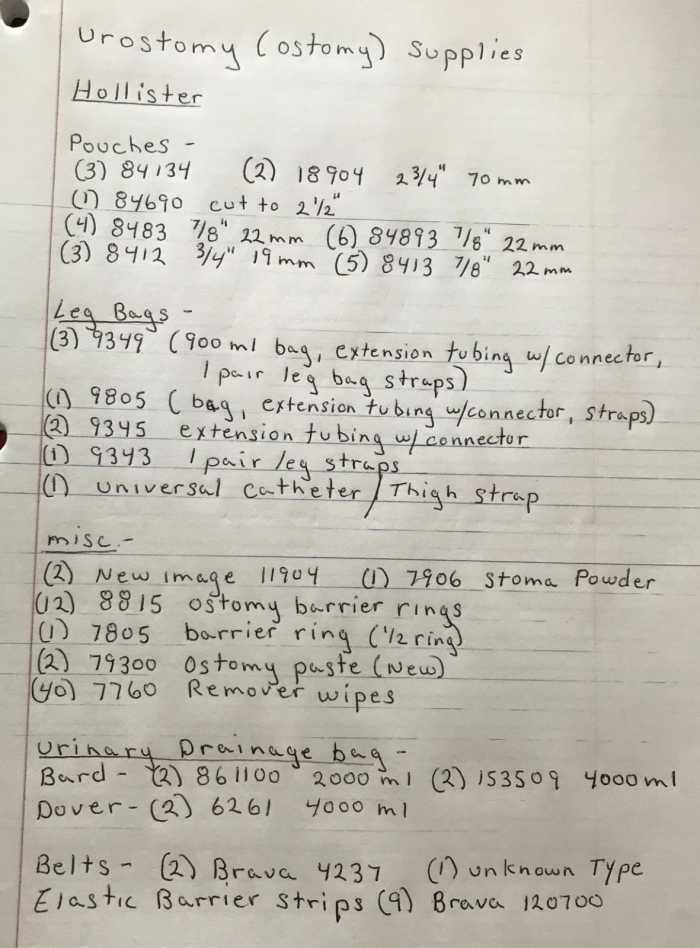 Urostomy (ostomy) Supplies
Hollister
Pouches -
(3) 84134 (2) 18904 2 3/4" 70 mm
(1) 84690 cut to 2 1/2"
(4) 8483 7/8" 22 mm (6) 84893 7/8" 22 mm
(3) 8412 3/4" 19 mm (5) 8413 7/8" 22 mm
Leg Bags -
(3) 9349 (900 ml bag, extension tubing w/ connector,
1 pair leg bag straps)
(1) 9805 (bag, extension tubing w/connector, straps)
(2) 9345 extension tubing w/ connector
(1) 9343 1 pair leg straps
(1) universal catheter / Thigh strap
misc. -
(2) New image 11904 (1) 7906 Stoma Powder
(12) 8815 ostomy barrier rings
(1) 7805 barrier ring (1/2 ring)
(2) 79300 Ostomy paste (New)
(40) 7760 Remover wipes
Urinary Drainage bag -
Bard - (2) 861100 2000 ml (2) 153509 4000 ml
Dover - (2) 6261 4000 ml
Belts - (2) Brava 4237 (1) unknown Type
Elastic Barrier strips (9) Brava 120700